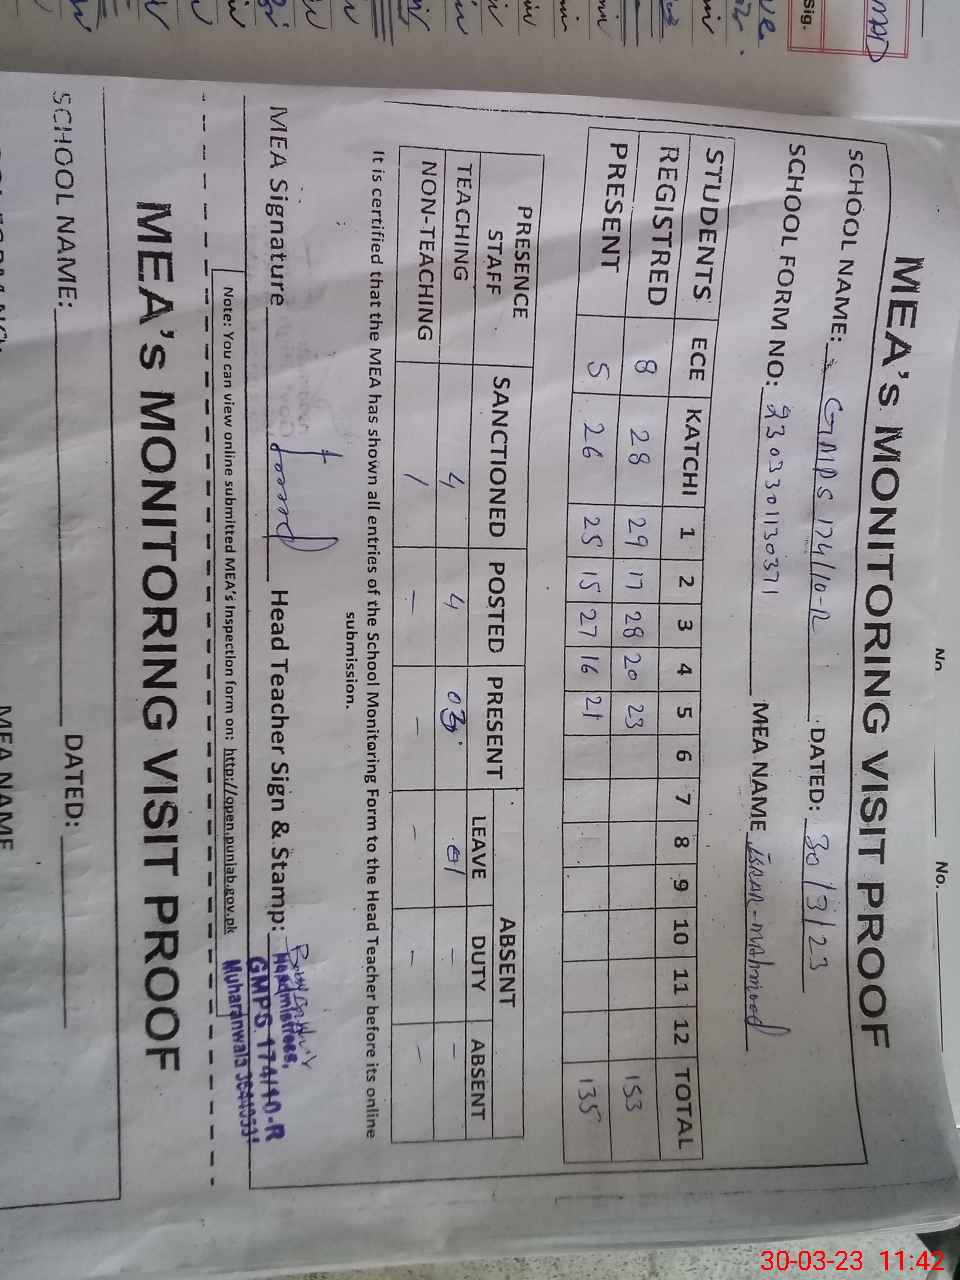 No. No.
MEA's MONITORING VISIT PROOF
SCHOOL NAME: GMPS 174/10-R DATED: 30/3/23
SCHOOL FORM NO: 2303301130371 MEA NAME ISRAR-MAhmood
STUDENTS ECE KATCHI 1 2 3 4 5 6 7 8 9 10 11 12 TOTAL
REGISTRED 8 28 29 17 28 20 23 153
PRESENT 5 26 25 15 27 16 21 135
PRESENCE STAFF SANCTIONED POSTED PRESENT ABSENT
LEAVE DUTY ABSENT
TEACHING 4 4 03 01 - -
NON-TEACHING / - - - - -
It is certified that the MEA has shown all entries of the School Monitoring Form to the Head Teacher before its online
submission.
MEA Signature Head Teacher Sign & Stamp:
Headmistress,
GMPS 174/10-R
Note: You can view online submitted MEA's Inspection form on: http://open.punjab.gov.pk
MEA's MONITORING VISIT PROOF
SCHOOL NAME: DATED:
MEA NAME
Sig.
30-03-23 11:42